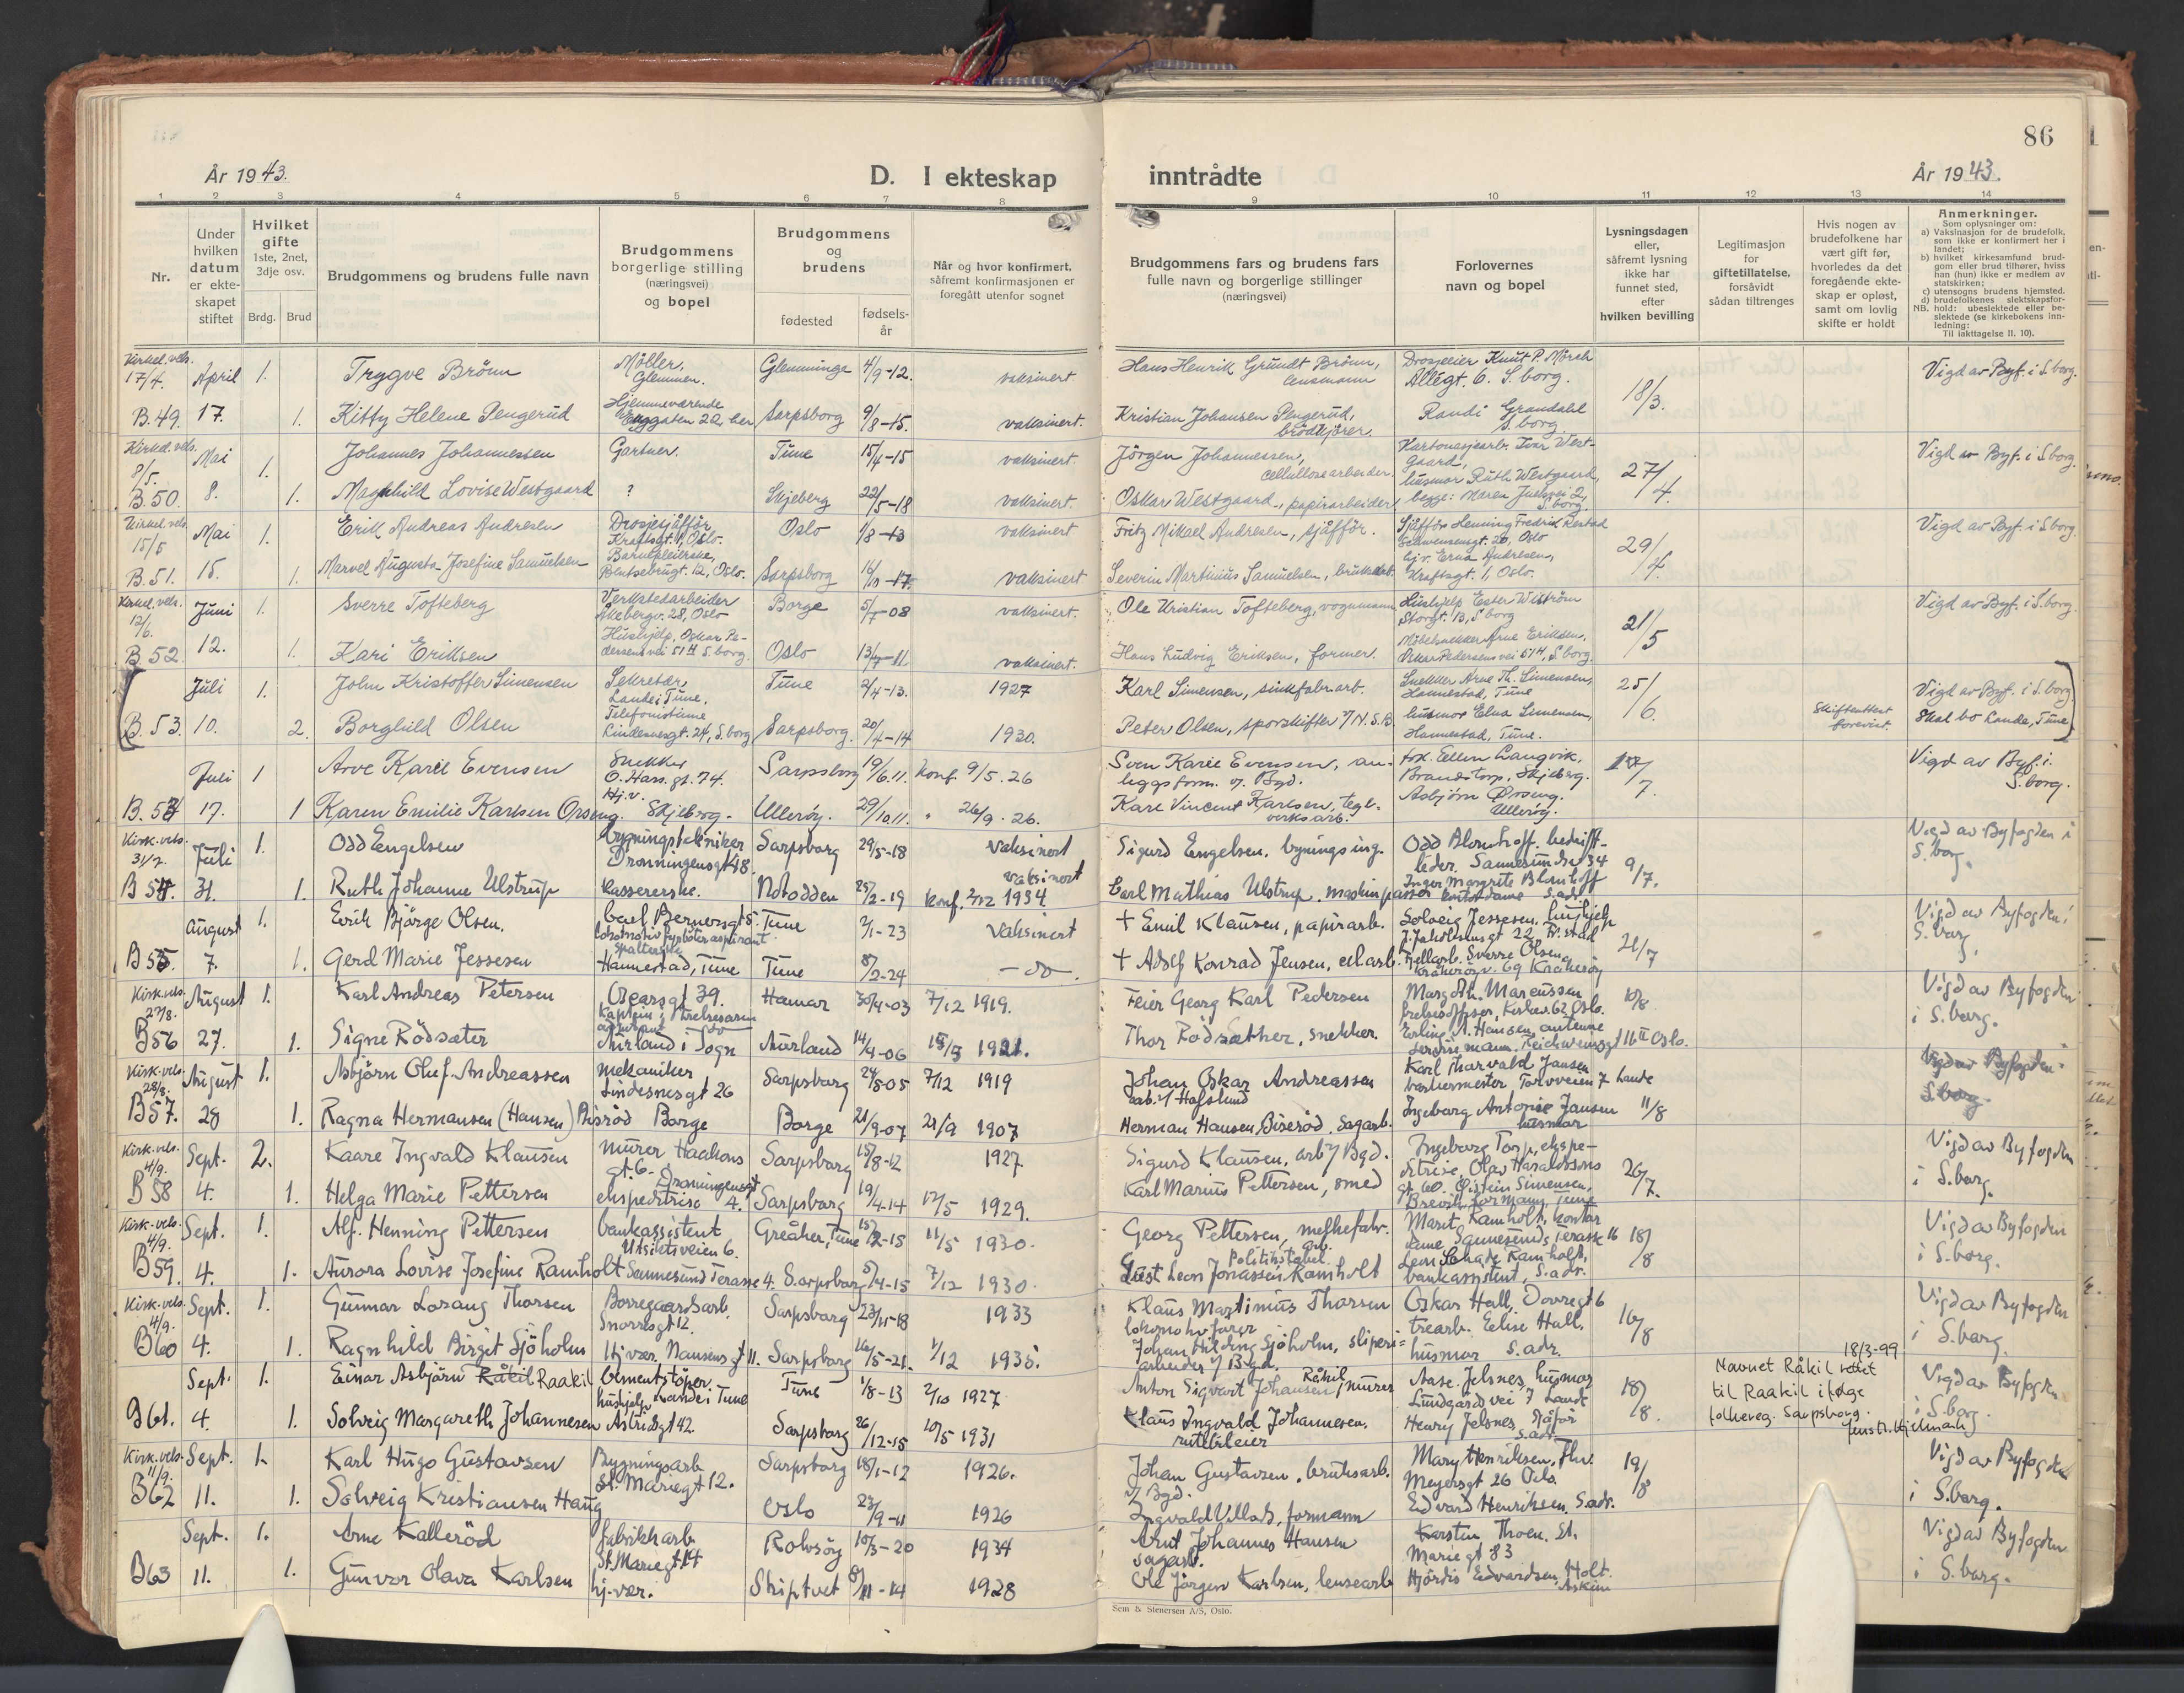 86
År 1943.
D. I ekteskap inntrådte
År 1943.
1 2 3 4 5 6 7 8 9 10 11 12 13 14
Nr.
Under hvilken datum er ekteskapet stiftet
Hvilket gifte 1ste, 2net, 3dje osv.
Brdg. Brud
Brudgommens og brudens fulle navn
Brudgommens borgerlige stilling (næringsvei) og bopel
Brudgommens og brudens
fødested
fødselsår
Når og hvor konfirmert, såfremt konfirmasjonen er foregått utenfor sognet
Brudgommens fars og brudens fars fulle navn og borgerlige stillinger (næringsvei)
Forlovernes navn og bopel
Lysningsdagen eller, såfremt lysning ikke har funnet sted, efter hvilken bevilling
Legitimasjon for giftetillatelse, forsåvidt sådan tiltrenges
Hvis nogen av brudefolkene har vært gift før, hvorledes da det foregående ekteskap er opløst, samt om lovlig skifte er holdt
Anmerkninger.
Som oplysninger om:
a) Vaksinasjon for de brudefolk, som ikke er konfirmert her i landet;
b) hvilket kirkesamfund brudgom eller brud tilhører, hviss han (hun) ikke er medlem av statskirken;
c) utensogns brudens hjemsted.
d) brudefolkenes slektskapsforhold: ubeslektede eller beslektede (se kirkebokens innledning:
NB. Til iakttagelse II. 10).
Kirkel. vels. 17/4. April 1. Trygve Brönn Möbler, Glemmen. Glemminge 4/9-12. vaksinert Hans Henrik Grundt Brönn, lensmann Drosjeeier Knut P. Mörch Allégt. 6. S.borg. 18/3. Vigd av Byf. i S.borg.
B.49. 17. 1. Kitty Helene Pengerud Hjemmeværende Enggaten 22, her Sarpsborg 9/8-15. vaksinert. Kristian Johansen Pengerud, brödkjører. Randi Grandahl S.borg.
Kirkel. vels. 8/5. Mai 1. Johannes Johannessen Gartner. Tune 15/4-15 vaksinert. Jörgen Johannessen, cellullosearbeider. Kartonasjearb. Ivar Westgaard, 27/4. Vigd av Byf. i S.borg.
B.50. 8. 1. Magnhild Lovise Westgaard ? Skjeberg 22/5-18 vaksinert. Oskar Westgaard, papirarbeider, husmor Ruth Westgaard, begge: Maren Juelsvei 2, S.borg.
Kirkel. vels. 15/5 Mai 1. Erik Andreas Andresen Drosjesjåfför, Kraftsgt. 1, Oslo. Oslo 1/8-13 vaksinert Fritz Mikael Andresen, sjåfför. Sjåffør Henning Fredrik Restad 29/4. Vigd av Byf. i S.borg.
B.51. 15. 1. Marvel Augusta Josefine Samuelsen Barnepleierske, 12, Oslo. Sarpsborg 16/10-17. vaksinert Severin Martinius Samuelsen, bruksarb. hj.v. Erna Andresen, Kraftsgt. 1, Oslo.
Kirkel. vels. 12/6. Juni 1. Sverre Tofteberg Verkstedarbeider Åkebergv. 28, Oslo Borge 5/7-08 vaksinert. Ole Kristian Tofteberg, vognmann Hushjelp Ester Wiström Storgt. 13, S.borg 21/5 Vigd av Byf. i S.borg.
B.52 12. 1. Kari Eriksen Hushjelp, Oskar Pedersens vei 51 H S.borg. Oslo 13/7-11. vaksinert. Hans Ludvig Eriksen, former. Møbelsnekker Arne Eriksen, Oskar Pedersens vei 51 H, S.borg.
Juli 1. John Kristoffer Simensen Sekretær, Lande i Tune. Tune 2/4-13. 1927 Karl Simensen, sinkfabr.arb. Snekker Arne Th. Simensen, Hannestad, Tune 25/6. Vigd av Byf. i S.borg
B.53. 10. 2. Borghild Olsen Telefonistinne Lindesnesgt. 24, S.borg Sarpsborg. 20/4-14 1930. Peter Olsen, sporskifter v/N.S.B. husmor Elna Simensen, Hannestad, Tune. Skifteattest forevist. Skal bo Lande, Tune
Juli 1 Arve Karel Evensen Snekker O. Hars. gt. 74. Sarpsborg 19/6.11. konf 9/5.26 Sven Karel Evensen, anleggsform. v. Bgd. frk. Ellen Langvik, Brandstorp, Skjeberg. 17/7. Vigd av Byf. i S.borg.
B.54 17. 1 Karen Emilie Karlsen Orseng. Hj.v. Skjeberg. Ullerøy. 29/10.11. " 26/9.26. Kare Vincent Karlsen, teglverksarb. Asbjörn Ørseng. Ullerøy.
Kirk. vels. 31/7. Juli 1. Odd Engelsen bygningstekniker Dronningensgt 48. Sarpsborg 29/5-18 Vaksinert Sigurd Engelsen, bynings ing. Odd Blomhoff. bedriftleder. Sannesundsv 34 9/7. Vigd av Byfogden i S.borg.
B 54. 31. 1. Ruth Johanne Ulstrup Kassererske. Notodden 25/2-19 vaksinert konf. 2/12 1934 Carl Mathias Ulstrup. maskinpasser Inger Margrete Blomhoff kontordame S.adr.
August 1. Evik Bjørge Olsen. Carl Bernersgt 5. lokomotiv fyrböteraspirant Tune 3/1-23 Vaksinert + Emil Klausen, papirarb. Solveig Jessesen, hushjelp 22 Fr.stad 21/7 Vigd av Byfogden i S.borg.
B 55. 7. 1. Gerd Marie Jessesen Hannestad, Tune Tune 8/2-24 -do-. + Adolf Konrad Jensen, cel.arb. Cellarb. Sverre Olsen, Kråkerøyv. 69 Kråkerøy
Kirk. vels. 27/8. August 1. Karl Andreas Petersen Oscarsgt 39. Kaptein i Frelsesarm Hamar 30/4-03 7/12 1919. Feier Georg Karl Pedersen Margoth. Marcussen frelsesoffiser, Kirkev. 62 Oslo. 10/8 Vigd av Byfogden i S.borg.
B56 27. 1. Signe Rödsæter Aurland i Sogn Aurland 14/4-06 15/5 1921. Thor Rødsæther, snekker. Erling A. Hansen, antenne 16 II Oslo.
Kirk. vels. 28/8. August 1. Asbjörn Oluf. Andreassen mekaniker Lindesnesgt 26 Sarpsborg 24/5-05 7/12 1919 Johan Oskar Andreassen arb. v/ Hafslund Karl Thorvald Jansen Torvveien 7 Lande 11/8 Vigd av Byfogden i S.borg.
B57. 28 1. Ragna Hermansen (Hansen) Bisröd Borge Borge 21/9-07 21/9 1907 Herman Hansen Biseröd. Sagarb. Ingeborg Antonie Jansen husmor
Kirk. vels. 4/9. Sept. 2. Kaare Ingvald Klausen murer Haakons gt. 6. Sarpsborg 15/8-12 1927. Sigurd Klausen, arb v/ Bgd. Ingeborg Torp, ekspeditrise, Olav Haraldssons gt 60. 26/7. Vigd av Byfogden i S.borg.
B 58 4. 1. Helga Marie Pettersen Dronningensgt ekspeditrise 4. Sarpsborg 19/4-14 12/5 1929. Karl Marius Pettersen, smed Øistein Simensen, Brevik, formann, Tune
Kirk. vels. 4/9. Sept. 1. Alf. Henning Pettersen bankassistent Utsiktsveien 6. Greåker, Tune 15/2-15 11/5 1930. Georg Pettersen, melkefabr. arb. Marit Ramholt, kontordame, Sannesunds Terasse 16 18/8 Vigd av Byfogden i S.borg.
B59. 4. 1. Aurora Lovise Josefine Ramholt Sannesund Terasse 4. Sarpsborg 5/4-15 7/12 1930. Just Leon Jonassen Ramholt Leon Schade Ramholt, bankassistent, S.adr.
Kirk. vels. 4/9. Sept. 1. Gunnar Lorang Thorsen Borregaardsarb. Snorresgt 12. Sarpsborg 23/11-18 1933 Klaus Martinius Thorsen lokomotivfører Oskar Hall, Dovregt 6 trearb. Eelise Hall, 16/8 Vigd av Byfogden i S.borg.
B60 4. 1. Ragnhild Birgit Sjöholm Hj.vær. Nansens gt 11. Sarpsborg 16/5-21. 1/12 1935. Johan Hilding Sjöholm, sliperiarbeider v/ Bgd. husmor S.adr.
Sept. 1. Einar Asbjörn Råkil Raakil Cementstøper, Lande i Tune Tune 1/8-13 2/10 1927 Anton Sigvart Johansen Råkil, murer Aase. Jelsnes, husmor Lundgårds vei 7 Lande 18/8. 18/3-99 Navnet Råkil rettet til Raakil ifølge folkereg. Sarpsborg. Vigd av Byfogden i S.borg.
B61. 4. 1. Solveig Margareth Johannesen hushjelp Astridsgt 42. Sarpsborg 26/12-15 10/5 1931 Klaus Ingvald Johannesen. rutebileier Henry Jelsnes, sjåför S.adr.
Kirk. vels. 11/9. Sept. 1. Karl Hugo Gustavsen Bygningsarb. St. Mariegt 12. Sarpsborg 18/1-12 1926. Johan Gustavsen, bruksarb. v/ Bgd. Mary Henriksen, Meyersgt 26 Oslo. 19/8 Vigd av Byfogden i S.borg.
B62 11. 1. Solveig Kristiansen Haug Oslo 23/9-11 1926 Ingvald Ullås, formann Edvard Henriksen. S.adr.
Sept. 1. Arne Kalleröd fabrikkarb. St. Mariegt 14 Rolvsöy 10/3-20 1934 Arnt Johannes Hansen sagarb. Karsten Thoen. St. Marie gt 83 Vigd av Byfogden i S.borg.
B63 11. 1. Gunvor Olava Karlsen hj.vær. Skiptvet 8/11-14 1928 Ole Jörgen Karlsen, lensearb. Hjördis Edvardsen, Holt. Askim
Sem & Stenersen A/S, Oslo.